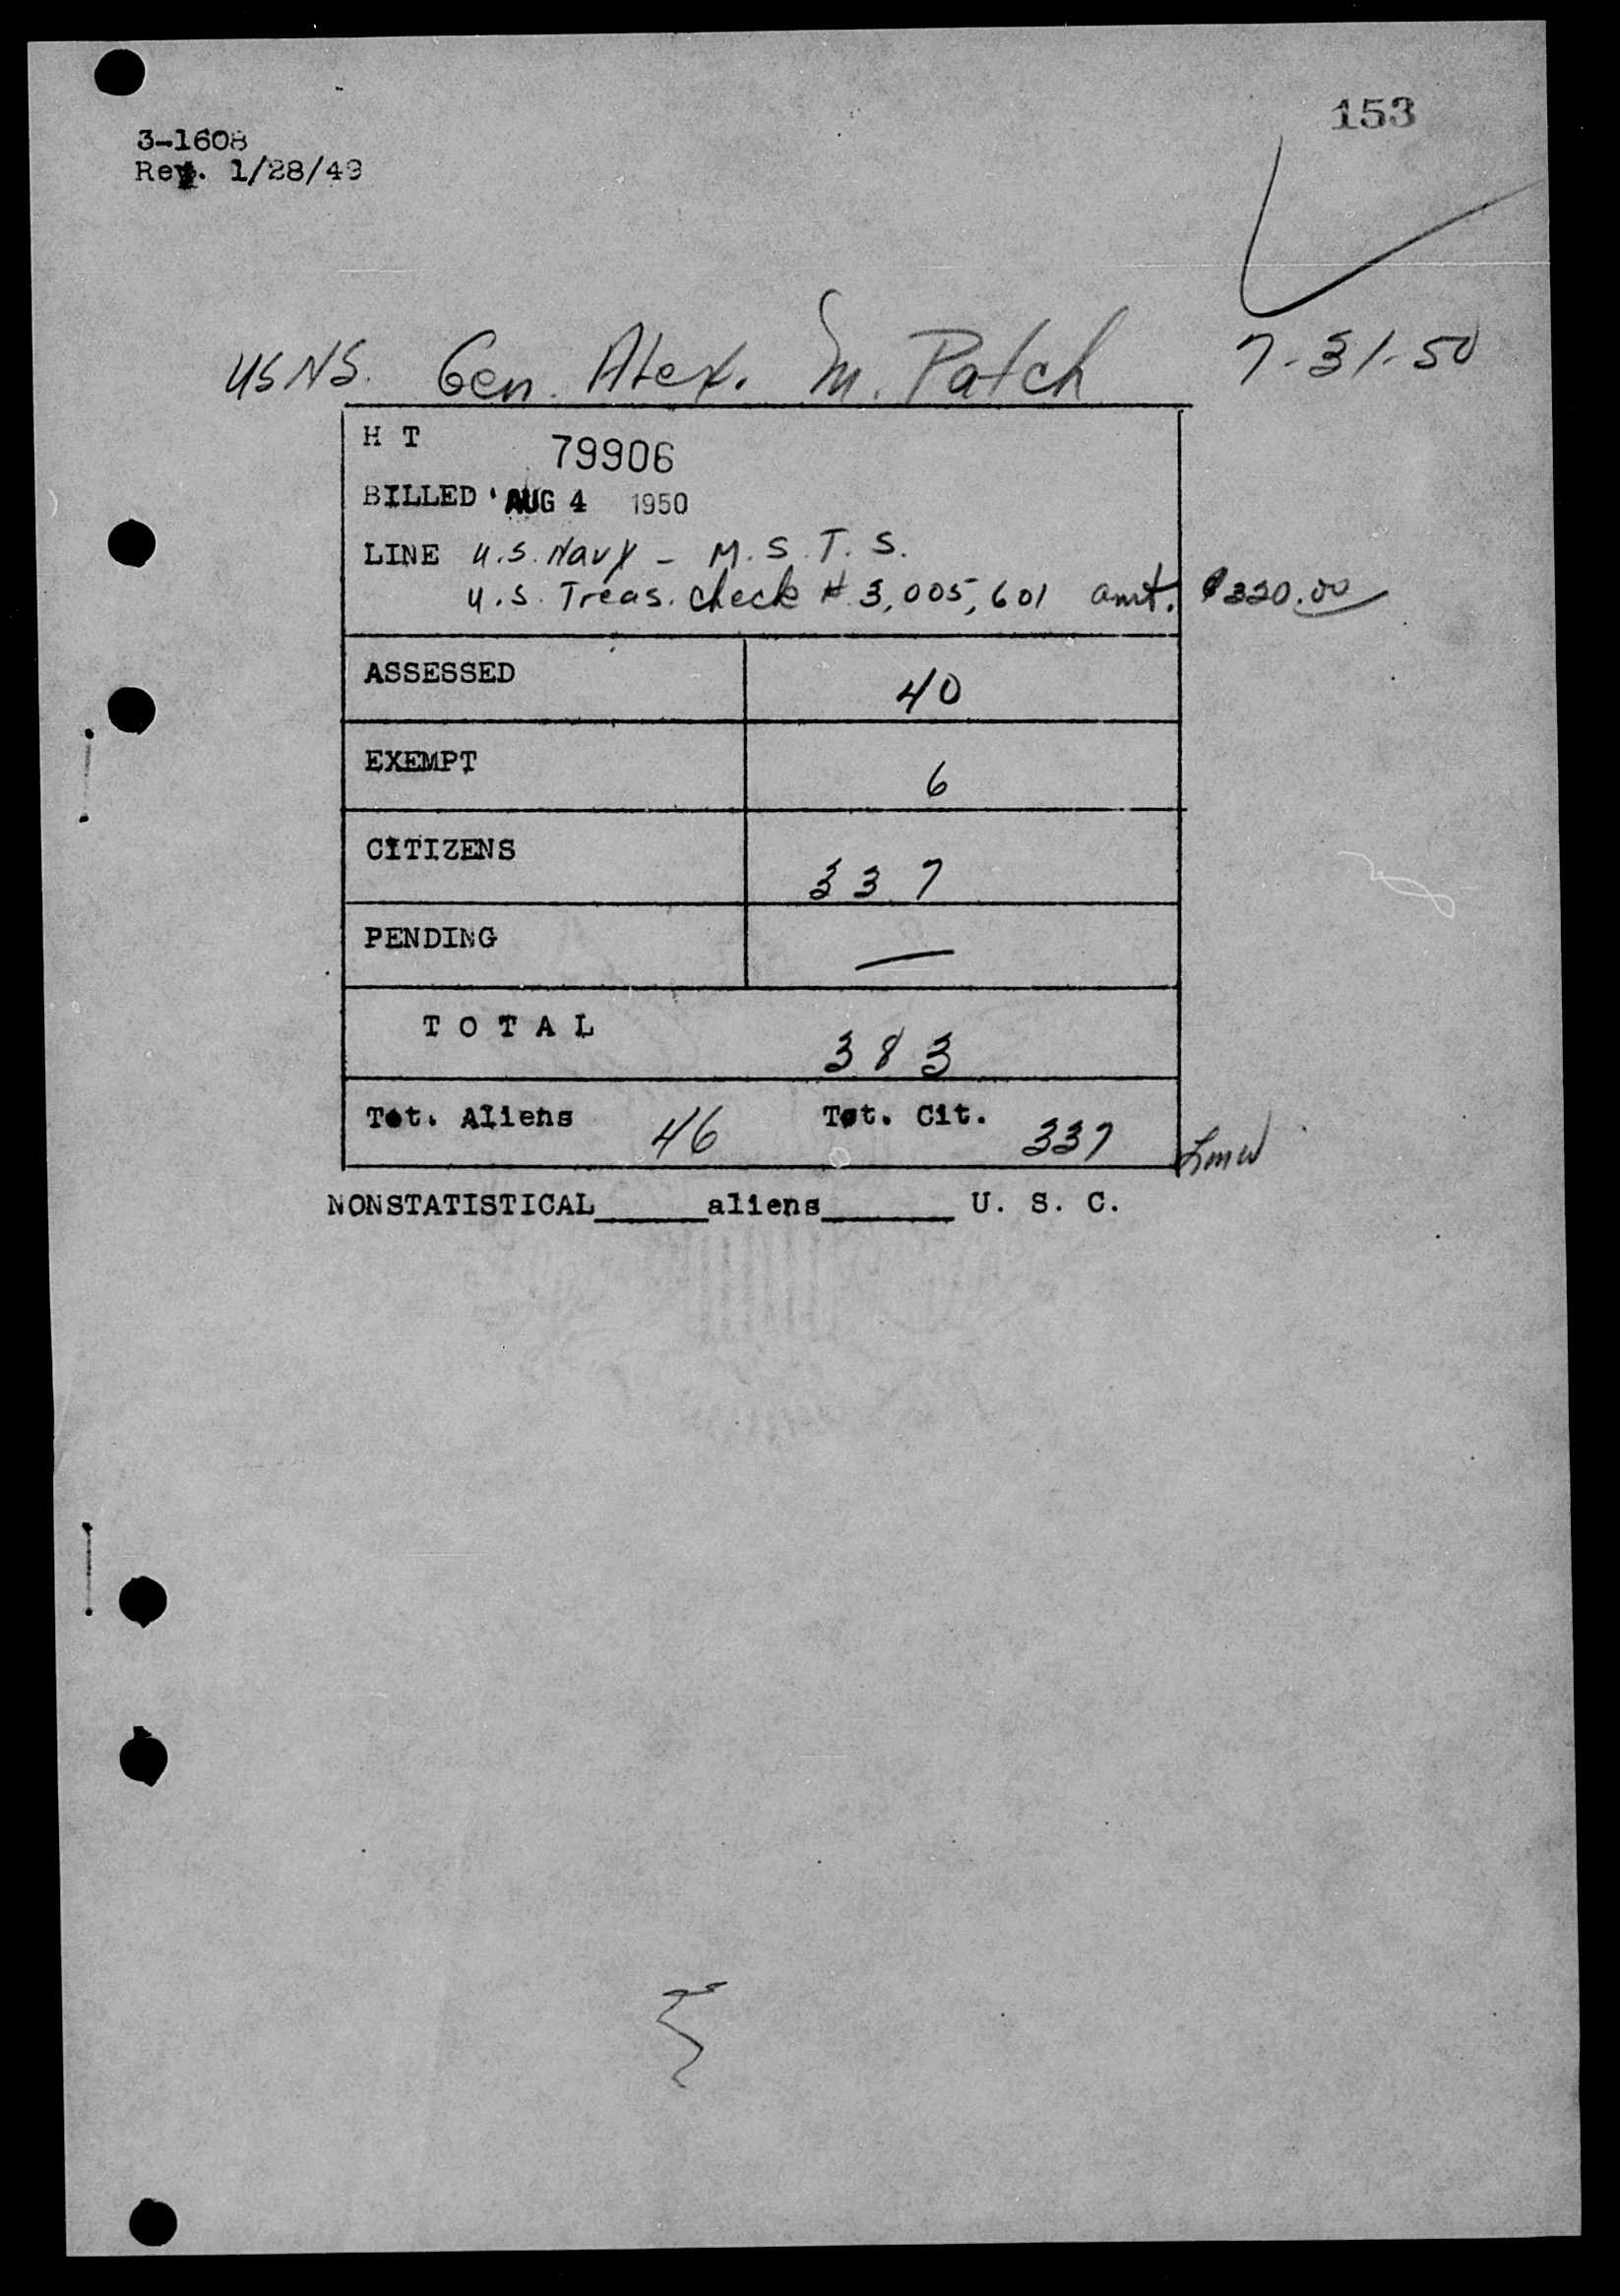 153
3-1608
Rev. 1/28/49
USNS. Gen. Alex. M. Patch 7-31-50
H T 79906
BILLED AUG 4 1950
LINE U.S. Navy - M.S.T.S.
U.S. Treas. check # 3,005,601 amt. $320.00
ASSESSED 40
EXEMPT 6
CITIZENS 337
PENDING —
TOTAL 383
Tot. Aliens 46 Tot. Cit. 337
NONSTATISTICAL______aliens_______ U. S. C.